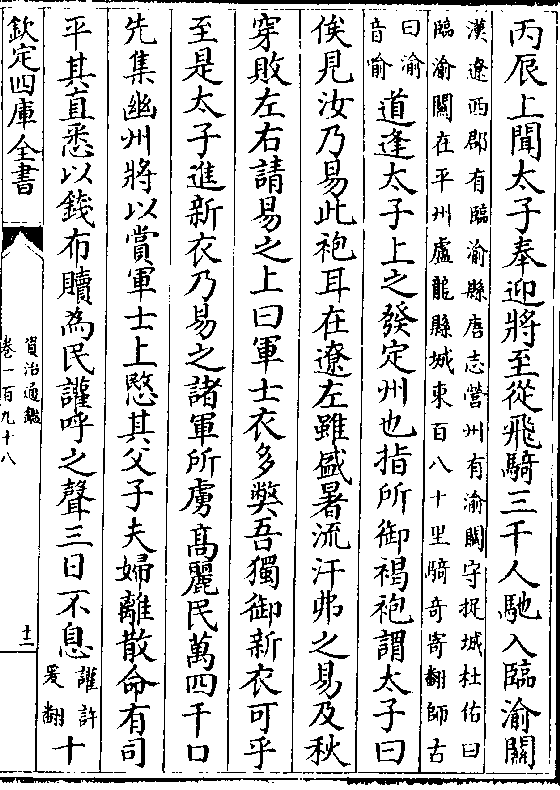 丙辰上聞太子奉迎將至從飛騎三千人馳入臨渝關
漢遼西郡有臨渝縣唐志營州有渝關守捉城杜佑曰
臨渝關在平州盧龍縣城東百八十里騎奇寄翻師古
曰渝
音喻
道逢太子上之發定州也指所御褐袍謂太子曰
俟見汝乃易此袍耳在遼左雖盛暑流汗弗之易及秋
穿敗左右請易之上曰軍士衣多弊吾獨御新衣可乎
至是太子進新衣乃易之諸軍所虜高麗民萬四千口
先集幽州將以賞軍士上愍其父子夫婦離散命有司
平其直悉以錢布贖為民讙呼之聲三日不息
讙許
爰翻
十
欽定四庫全書
資治通鑑
卷一百九十八
十二